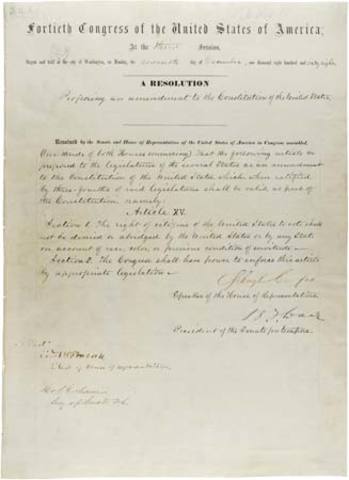 Fortieth Congress of the United States of America;
At the third Session,
Begun and held at the city of Washington, on Monday, the seventh day of December, one thousand eight hundred and sixty-eight.
A RESOLUTION
Proposing an amendment to the Constitution of the United States.
Resolved by the Senate and House of Representatives of the United States of America in Congress assembled,
(two-thirds of both Houses concurring) That the following article be
proposed to the legislatures of the several States as an amendment
to the Constitution of the United States which, when ratified
by three-fourths of said legislatures shall be valid as part of
the Constitution, namely:
Article XV.
Section 1. The right of citizens of the United States to vote shall
not be denied or abridged by the United States or by any State
on account of race, color, or previous condition of servitude—
Section 2. The Congress shall have power to enforce this article
by appropriate legislation—
Speaker of the House of Representatives
B. F. Wade
President of the Senate pro tempore.
Attest
Clerk of House of Representatives
Secy of Senate U.S.